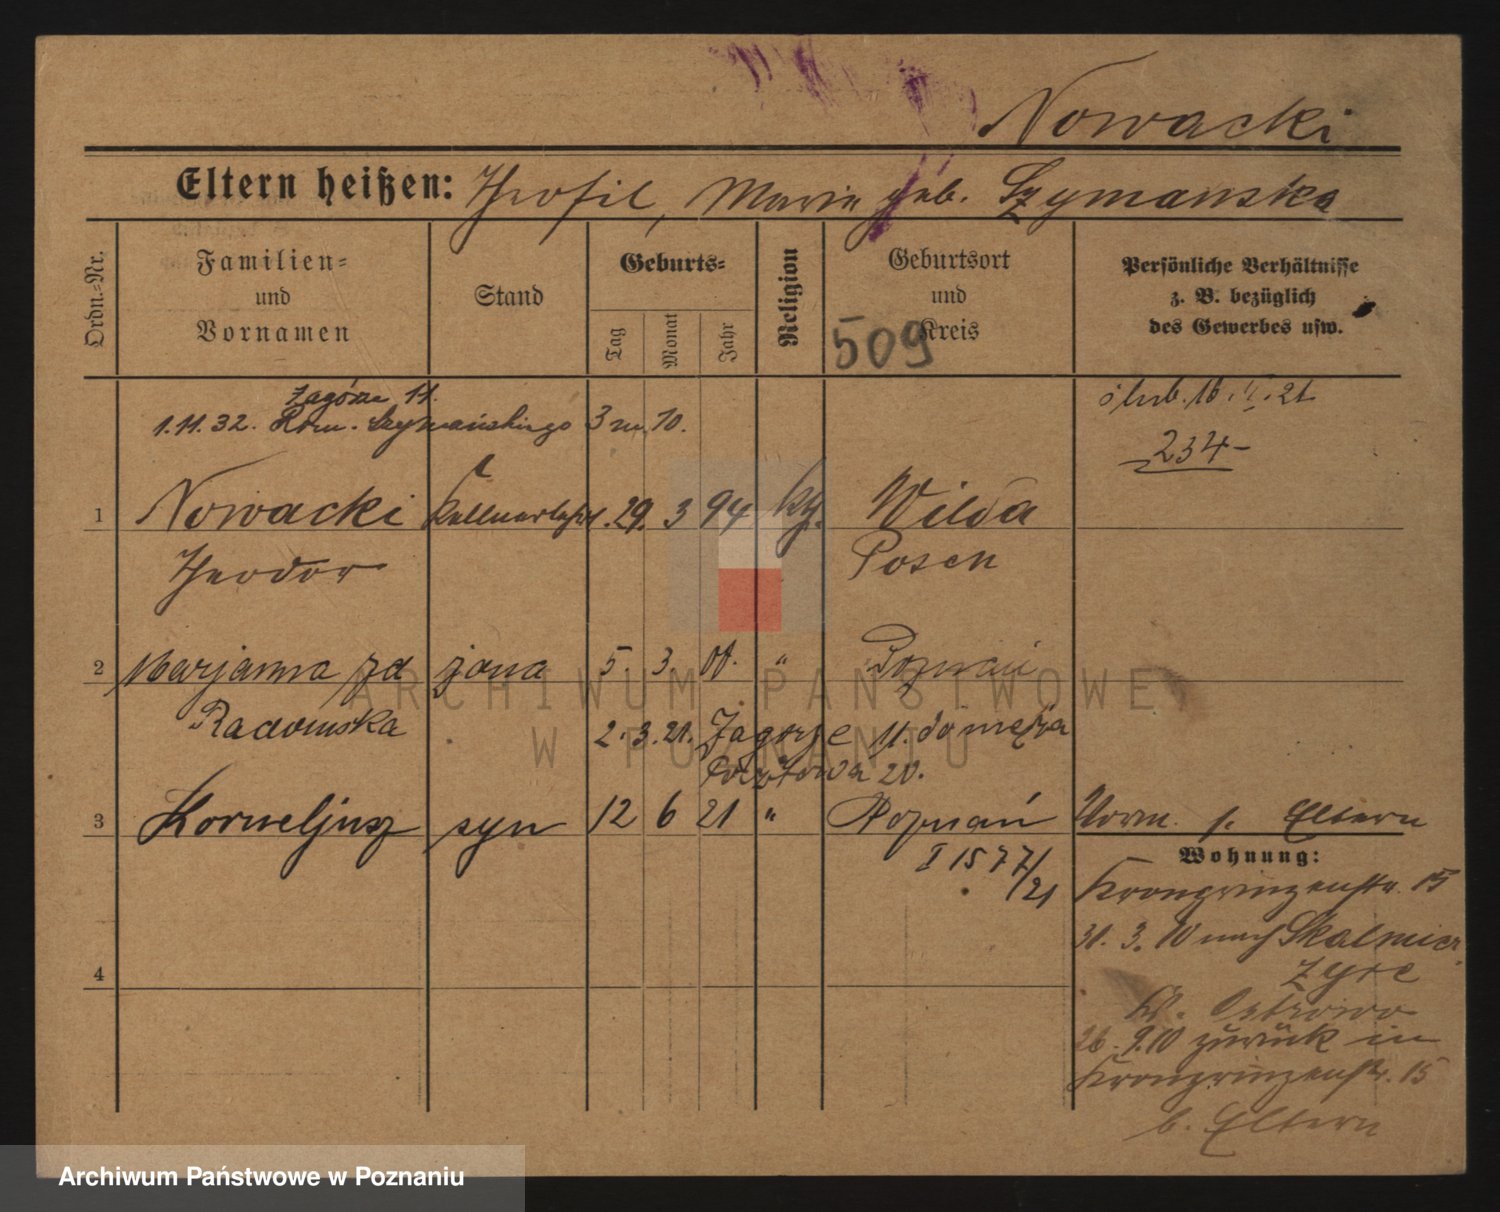 Nowacki
Eltern heißen: Theofil, Maria geb. Szymanska
Ordn.-Nr.
Familien-
und
Vornamen
Stand
Geburts-
Tag
Monat
Jahr
Religion
Geburtsort
und
Kreis
509
Persönliche Verhältnisse
z. B. bezüglich
des Gewerbes usw.
Zagórze 11.
1.11.32. Rom. Szymańskiego 3 m. 10.
ślub. 16. 21
234-
1 Nowacki 29. 3 94 kth. Wilda
Theodor Posen
2 Marjanna zd żona 5. 3. 01. " Poznań
Radomska 2. 3. 21. Zagorze 11. do męża
Pocztowa 20.
3 Korneljusz syn 12 6 21 " Poznań
I 1577/21
Vorm. s. Eltern
Wohnung:
Kronprinzenstr. 15
31. 3. 10 nach Skalmier
zyce
Kr. Ostrowo
26. 9.10 zurück in
Kronprinzenstr. 15
b. Eltern
4
ARCHIWUM PAŃSTWOWE
W POZNANIU
Archiwum Państwowe w Poznaniu